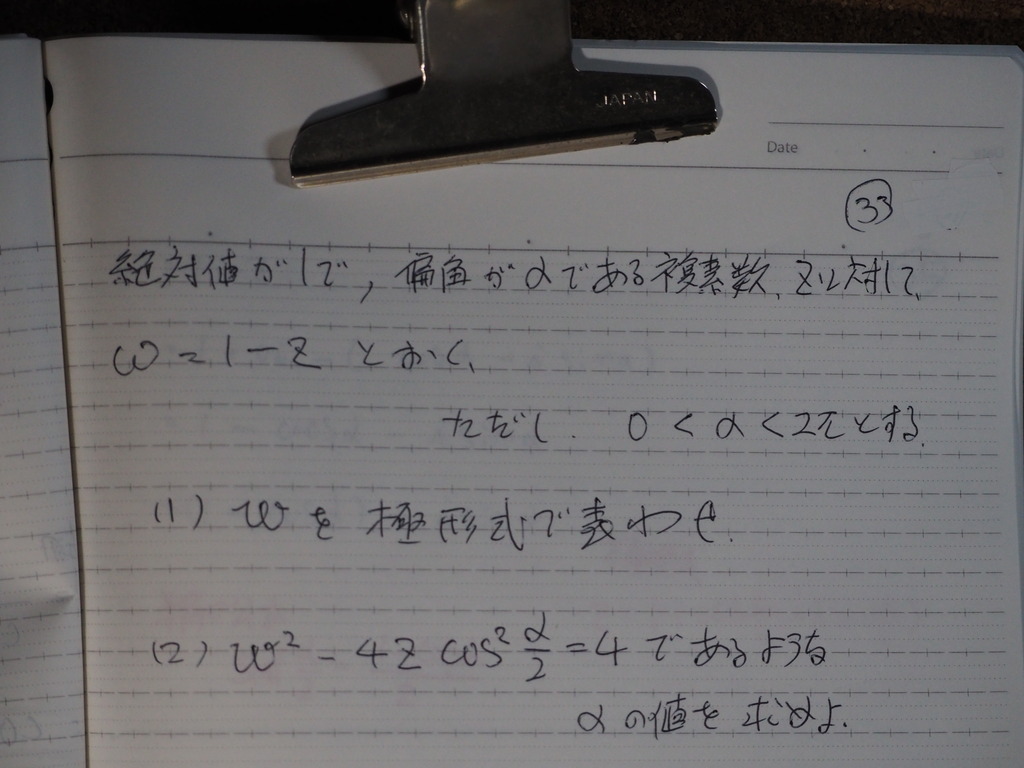 JAPAN
Date
33
絶対値が1で, 偏角がαである複素数 zに対して、
w = 1 - z とおく、
ただし、 0 < α < 2π とする.
(1) wを極形式で表わせ.
(2) w² - 4z cos² α/2 = 4 であるような
αの値を求めよ.